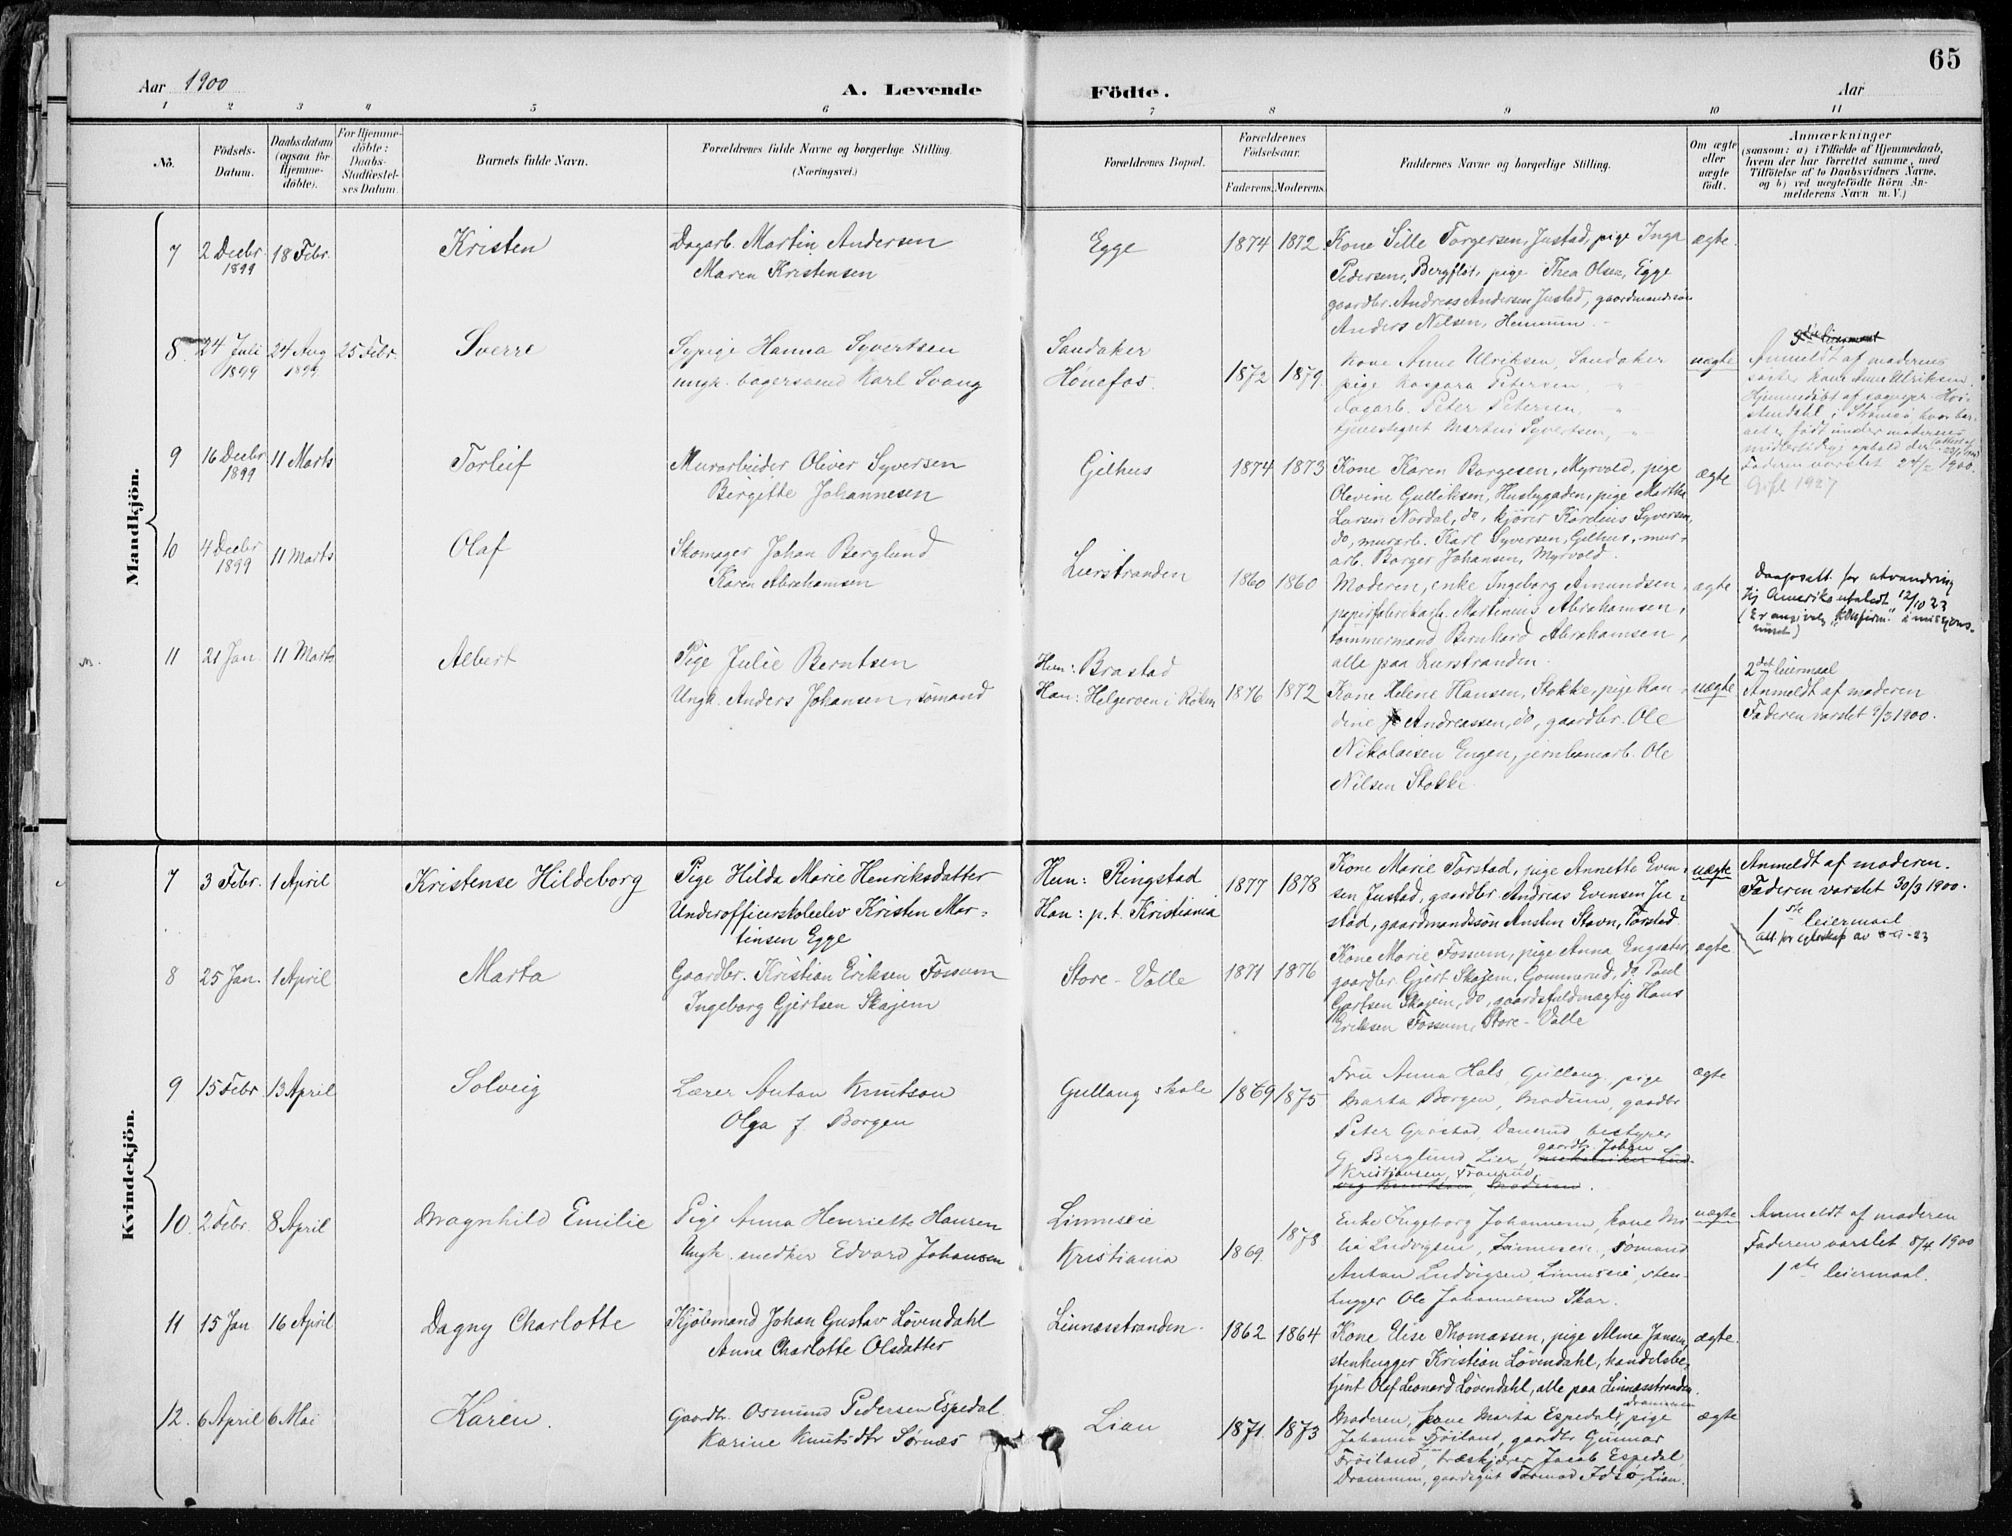 65
Aar 1900
A. Levende
Födte.
Aar
1 2 3 4 5 6 7 8 9 10 11
No.
Födsels-
Datum.
Daabsdatum
(ogsaa for
Hjemme-
döbte).
For Hjemme-
döbte:
Daabs-
Stadfæstel-
ses Datum.
Barnets fulde Navn.
Forældrenes fulde Navne og borgerlige Stilling.
(Næringsvei.)
Forældrenes Bopæl.
Forældrenes
Födselsaar.
Faderens.
Moderens.
Faddernes Navne og borgerlige Stilling.
Om ægte
eller
uægte
født.
Anmærkninger
(saasom: a) i Tilfælde af Hjemmedaab,
hvem der har forrettet samme, med
Tilföielse af to Daabsvidners Navne.
og b) ved uægtefödte Börn An-
melderens Navn m. V.)
Mandkjön.
7 2 Decbr 1899 18 Febr. Kristen
Dagarb. Martin Andersen
Maren Kristensen
Egge 1874 1872
Kone Sille Torgersen, Justad, pige Inga
Pedersen, Bergfløt, pige Thea Olsen, Egge
gaardbr. Andreas Andersen Justad, gaardmandssøn
Anders Nilsen, Hennum.
ægte
8 24 Juli 1899 24 Aug 1899 25 Febr. Sverre
Sypige Hanna Syvertsen
ungk. bagersvend Karl Svang
Sandaker
Hønefos. 1872 1879
Kone Anne Ulriksen, Sandaker
pige Kaspara Petersen, "
dagarb. Peter Petersen, "
tjenestegut Martin Syvertsen, "
uægte
Anmeldt af moderens
søster kone Anne Ulriksen.
Hjemmedøbt af sognepr.
i Strømsø hvor bar-
net er født under moderens
midlertidige ophold der
Faderen varslet 24/2 1900.
Gift 1927
9 16 Decbr 1899 11 Marts Torleif
Murarbeider Oliver Syversen
Birgitte Johannesen
Gilhus 1874 1873
Kone Karen Borgesen, Myrvold, pige
Olevine Gulliksen, Husbygaden, pige Martha
Larsen Nordal, do, kjører Karelius Syversen,
do, murarb. Karl Syversen, Gilhus, mur-
arb. Borger Johansen, Myrvold.
ægte
10 4 Decbr 1899 11 Marts Olaf
Skomager Johan Berglund
Karen Abrahamsen
Lierstranden 1860 1860
Moderen, enke Ingeborg Amundsen,
papirfabrikarb. Martinius Abrahamsen,
tømmermand Bernhard Abrahamsen,
alle paa Lierstranden.
ægte
Daapsatt. for utvandring
til Amerika utstedt 12/10 23
(Er angivelig "Konfirm." i misjons-
huset)
11 21 Jan. 11 Marts Albert
Pige Julie Berntsen
Ungk. Anders Johansen, sømand
Hun: Brastad
Han: Helgeroen i Røken 1876 1872
Kone Helene Hansen, Stokke, pige Ran-
dine Andreassen, do, gaardbr. Ole
Nikolaisen Engen, jernbanearb. Ole
Nilsen Stokke.
uægte
2det leiermaal
Anmeldt af moderen
Faderen varslet 9/3 1900.
Kvindekjön.
7 3 Febr. 1 April Kristense Hildeborg
Pige Hilda Marie Henriksdatter
Underofficerskoleelev Kristen Mar-
tinsen Egge
Hun: Ringstad
Han: p.t. Kristiania 1877 1878
Kone Marie Torstad, pige Annette Even-
sen Justad, gaardbr. Andreas Evensen Ju-
stad, gaardmandssøn Ansten Stavn, Torstad
uægte
Anmeldt af moderen.
Faderen varslet 30/3 1900.
1ste leiermaal
Att. for egteskap av 8-9-23
8 25 Jan. 1 April Marta
Gaardbr. Kristian Eriksen Fossum
Ingeborg Gjertsen Skajem
Store-Valle 1871 1876
Kone Marie Fossum, pige Anna Engsæter,
gaardbr. Gjert Skajem, Gommerud, do. Paul
Gjertsen Skajem, do, gaardsfuldmægtig Hans
Eriksen Fossum, Store-Valle
ægte
9 15 Febr 13 April Solveig
Lærer Anton Knutson
Olga f. Borgen
Gullaug skole 1869 1875
Fru Anna Hals, Gullaug, pige
Marta Borgen, Modum, gaardbr
Peter Gjerstad, Danerud, bestyrer
G. Berglund, Lier, gaardb. Johan
Kristiansen, Tranerud
ægte
10 2 Febr. 8 April Magnhild Emilie
Pige Anna Henriette Hansen
Ungk. snedker Edvard Johansen
Linneseie
Kristiania 1869 1878
Enke Ingeborg Johannesen, kone Ma-
lia Ludvigsen, Linneseie, sømand
Anton Ludvigsen, Linneseie, sten-
hugger Ole Johannesen Skar.
uægte
Anmeldt af moderen
Faderen varslet 8/4 1900
1ste leiermaal.
11 15 Jan 16 April Dagny Charlotte
Kjøbmand Johan Gustav Løvendahl
Anna Charlotte Olsdatter
Linnesstranden 1862 1864
Kone Elise Thomassen, pige Alma Jansen,
stenhugger Kristian Løvendahl, handelsbe-
tjent Olaf Leonard Løvendahl, alle paa Linnesstranden
ægte.
12. 6 April 6 Mai Karen.
Gaardbr. Osmund Pedersen Espedal
Karine Knutsdtr Sørnæs
Lian 1871. 1873
Moderen, kone Marta Espedal, Drammen pige
Johanna Frøiland, gaardbr Gunnar
Frøiland, Lian træskjærer Jacob Espedal,
Drammen, gaardsgut Tormod Idsø, Lian.
ægte